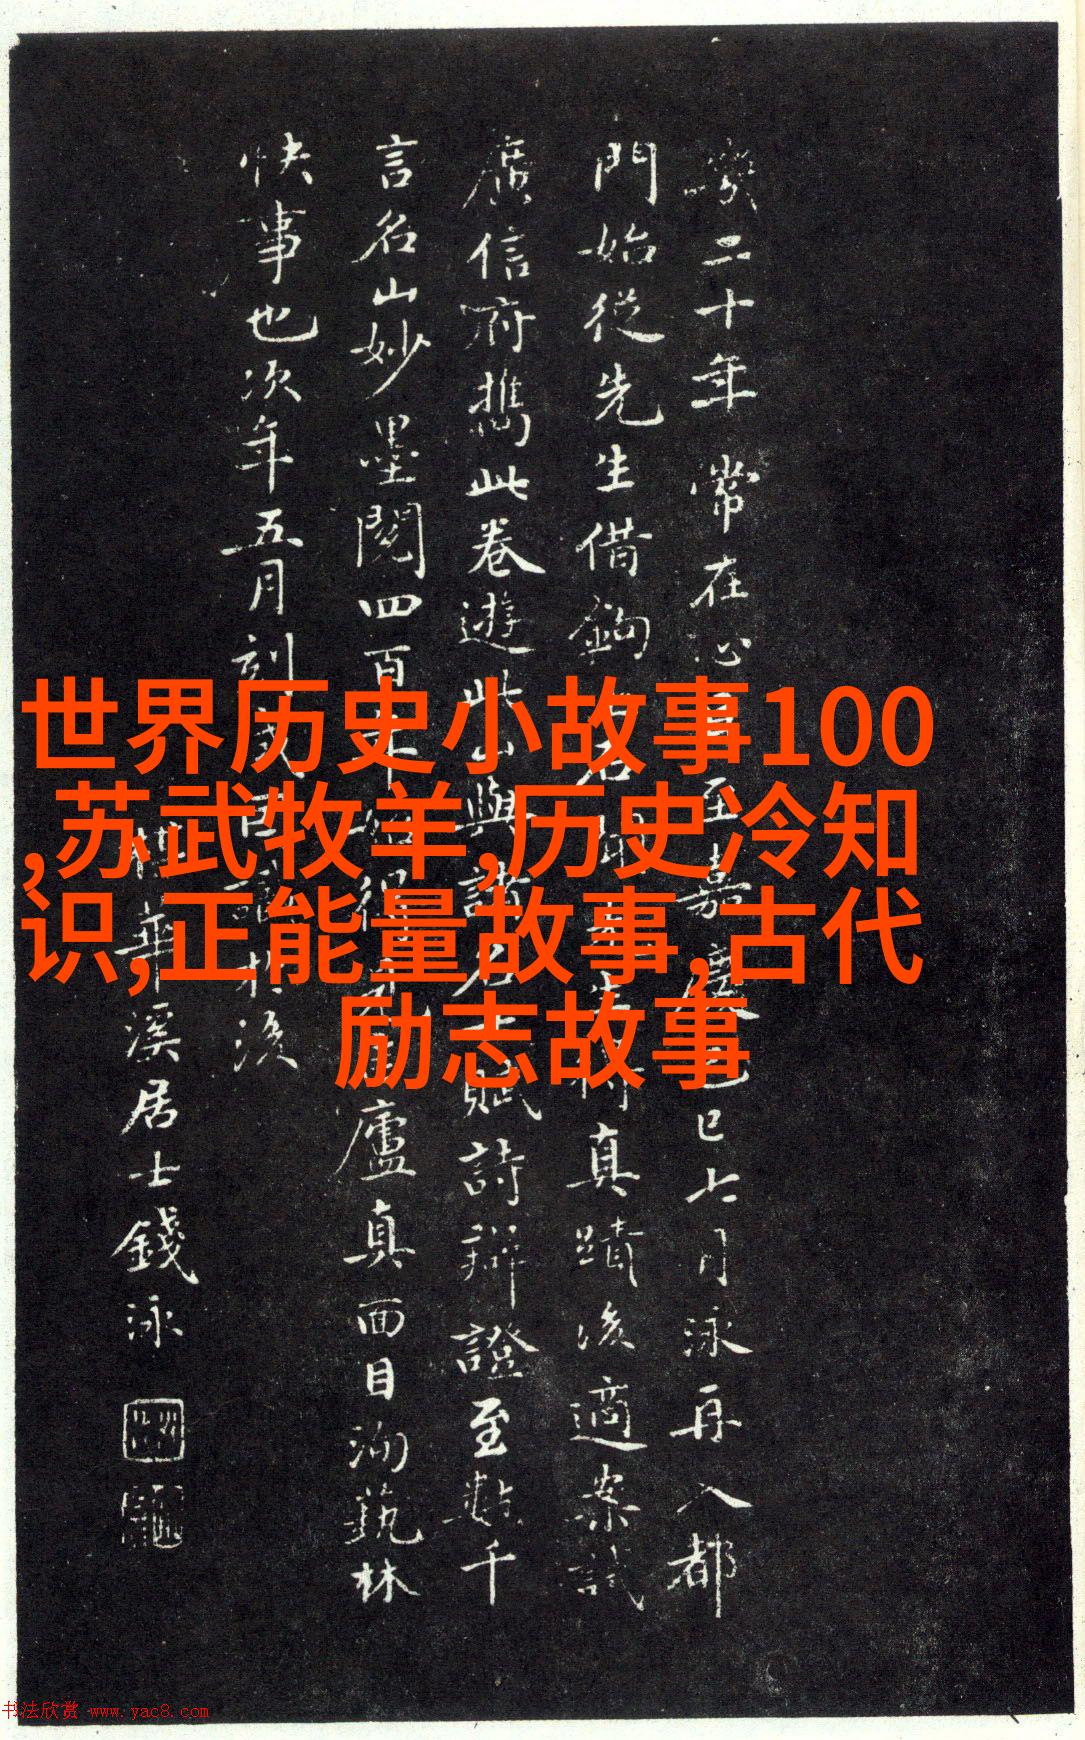 世界历史小故事100
,苏武牧羊,历史冷知
识,正能量故事,古代
励志故事
二十年常在心至嘉慶己巳七月泳再入都
門始從先生借鉤真蹟後適案試
廣信府攜此卷遊此山與諸名士賦詩辯證至數千
言名山妙墨閱四百年廬真面目洵藝林
快事也次年五月刻成因識於後
華溪居士錢泳
书法欣赏 www.yac8.com